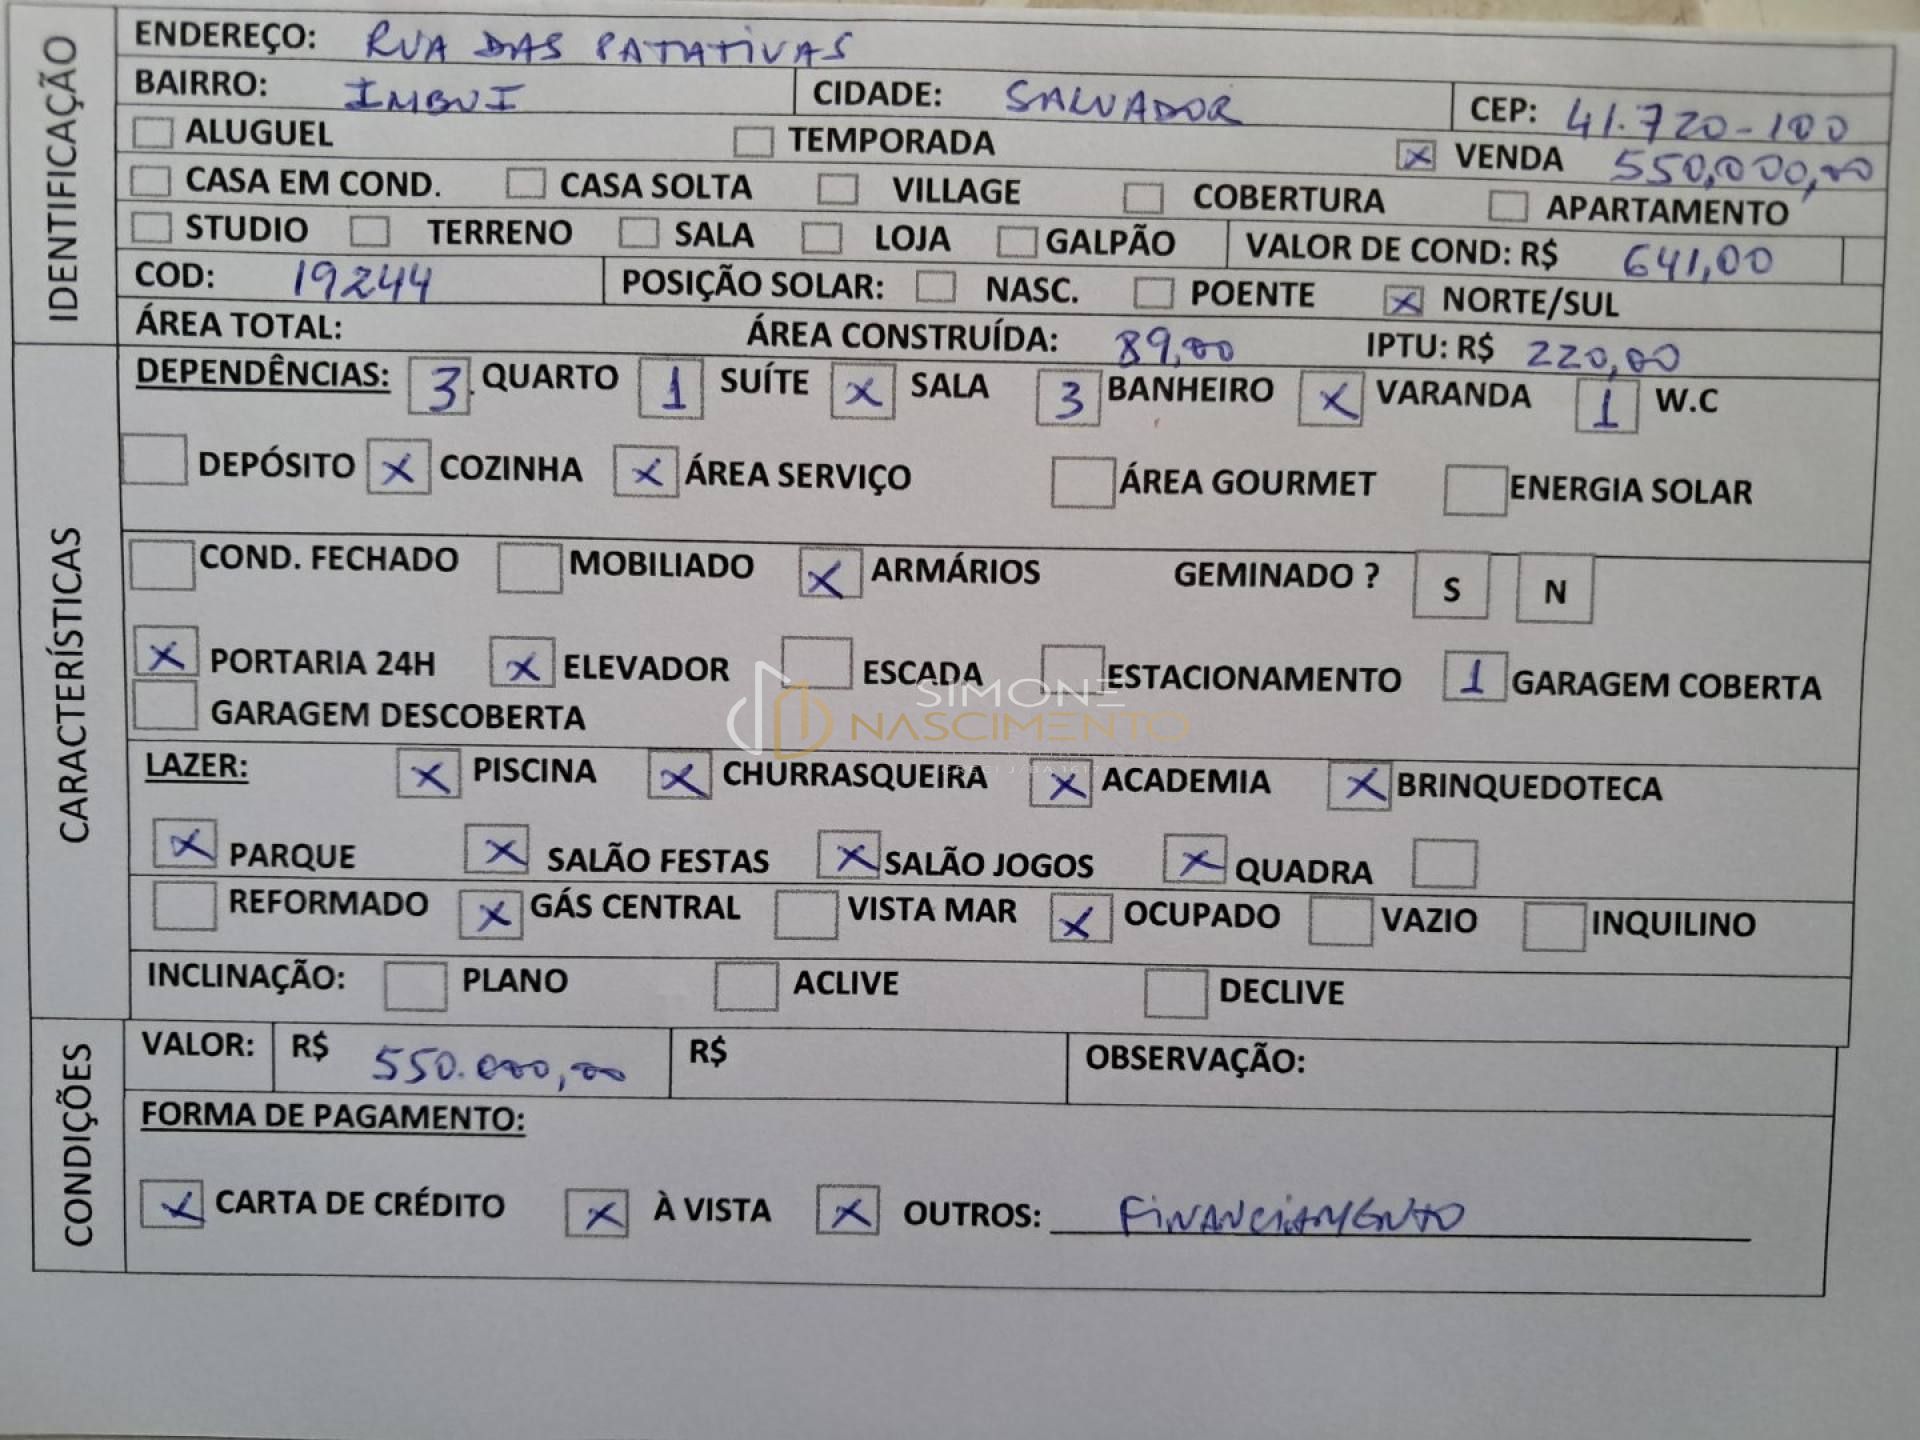 IDENTIFICAÇÃO
ENDEREÇO: RUA DAS PATATIVAS
BAIRRO: IMBUI CIDADE: SALVADOR CEP: 41.720-100
ALUGUEL TEMPORADA X VENDA 550,000,00
CASA EM COND. CASA SOLTA VILLAGE COBERTURA APARTAMENTO
STUDIO TERRENO SALA LOJA GALPÃO VALOR DE COND: R$ 641,00
COD: 19244 POSIÇÃO SOLAR: NASC. POENTE X NORTE/SUL
ÁREA TOTAL: ÁREA CONSTRUÍDA: 89,00 IPTU: R$ 220,00
CARACTERÍSTICAS
DEPENDÊNCIAS: 3 QUARTO 1 SUÍTE X SALA 3 BANHEIRO X VARANDA 1 W.C
DEPÓSITO X COZINHA X ÁREA SERVIÇO ÁREA GOURMET ENERGIA SOLAR
COND. FECHADO MOBILIADO X ARMÁRIOS GEMINADO ? S N
X PORTARIA 24H X ELEVADOR ESCADA ESTACIONAMENTO 1 GARAGEM COBERTA
GARAGEM DESCOBERTA
SIMONE
NASCIMENTO
CRECI J/BA 1617
LAZER: X PISCINA X CHURRASQUEIRA X ACADEMIA X BRINQUEDOTECA
X PARQUE X SALÃO FESTAS X SALÃO JOGOS X QUADRA
REFORMADO X GÁS CENTRAL VISTA MAR X OCUPADO VAZIO INQUILINO
INCLINAÇÃO: PLANO ACLIVE DECLIVE
CONDIÇÕES
VALOR: R$ 550.000,00 R$ OBSERVAÇÃO:
FORMA DE PAGAMENTO:
X CARTA DE CRÉDITO X À VISTA X OUTROS: FINANCIAMENTO